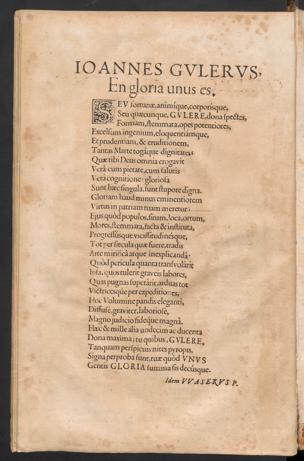 IOANNES GVLERVS,
En gloria unus es.
SEV fortunæ, animique, corporisque,
Seu quæcunque, GVLERE, dona spectes,
Formam, stemmata, opes potentiores,
Excelsum ingenium, eloquentiamque,
Et prudentiam, & eruditionem,
Tantas Marte togáque dignitates
Quæ tibi Deus omnia erogavit
Verâ cum pietate, cum salutis
Verâ cognitione: gloriosa
Sunt hæc singula, sunt stupore digna.
Gloriam haud minus eminentiorem
Virtus in patriam tuam meretur:
Ejus quòd populos, situm, loca, ortum,
Mores, stemmata, facta & instituta,
Progressusque vicissitudinesque,
Tot per sæcula quæ fuere, tradis
Arte mirificâ atque inexplicandâ
Quòd pericula quanta transvolârit
Ipsa, quos tulerit graveis labores,
Quas pugnas superârit, arduas tot
Victricesque per expeditiones,
Hoc Volumine pandis eleganti,
Diffusè, graviter, laboriosè,
Magno judicio fideque magnâ.
Hæc & mille alia undecim ac ducenta
Dona maxima; tu quibus, GVLERE,
Tanquam perspicuis nites pyropis,
Signa perproba sunt, quòd VNVS
Gentis GLORIA summa sis decúsque.
Idem VVASERVS P.